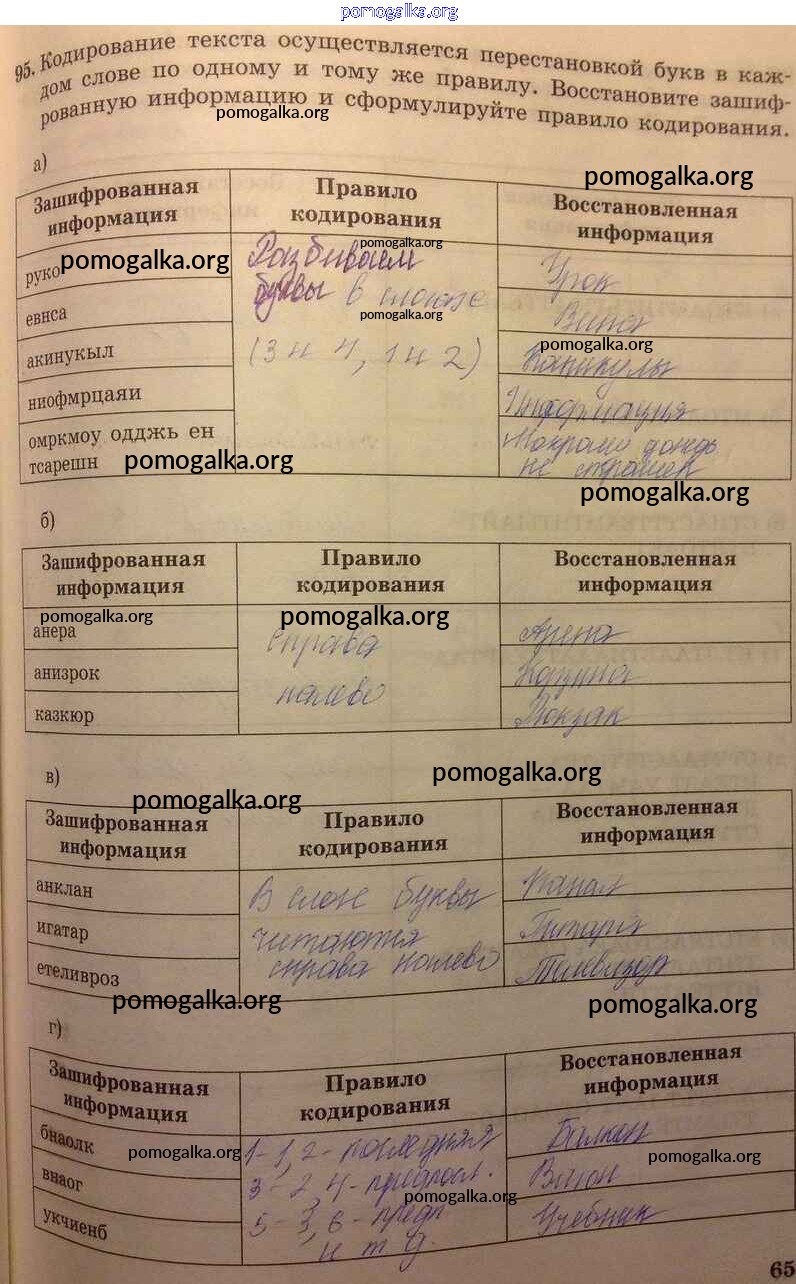 pomogalka.org
95. Кодирование текста осуществляется перестановкой букв в каж-
дом слове по одному и тому же правилу. Восстановите зашиф-
рованную информацию и сформулируйте правило кодирования.
pomogalka.org
а)
pomogalka.org
Зашифрованная информация
Правило кодирования
Восстановленная информация
pomogalka.org
руко
pomogalka.org
Разбиваем
Урок
евнса
буквы в слоге
pomogalka.org
акинукыл
(3 и 4, 1 и 2)
pomogalka.org
Каникулы
ниофмрцаяи
Информация
омркмоу одджь ен
тсарешн
pomogalka.org
Мокрому дождь
не страшен
pomogalka.org
б)
Зашифрованная информация
Правило кодирования
Восстановленная информация
pomogalka.org
pomogalka.org
анера
справа
Арена
анизрок
налево
Корзина
казкюр
Рюкзак
в)
pomogalka.org
pomogalka.org
Зашифрованная информация
Правило кодирования
Восстановленная информация
анклан
В слоге буквы
Канал
игатар
читаются
Гитара
етеливроз
справа налево
Телевизор
pomogalka.org
pomogalka.org
г)
Зашифрованная информация
Правило кодирования
Восстановленная информация
бнаолк
pomogalka.org
1-1, 2- последняя
Балкон
pomogalka.org
внаог
3-2, 4- предпосл.
pomogalka.org
укчиенб
5-3, 6- предп
и т д.
Учебник
65